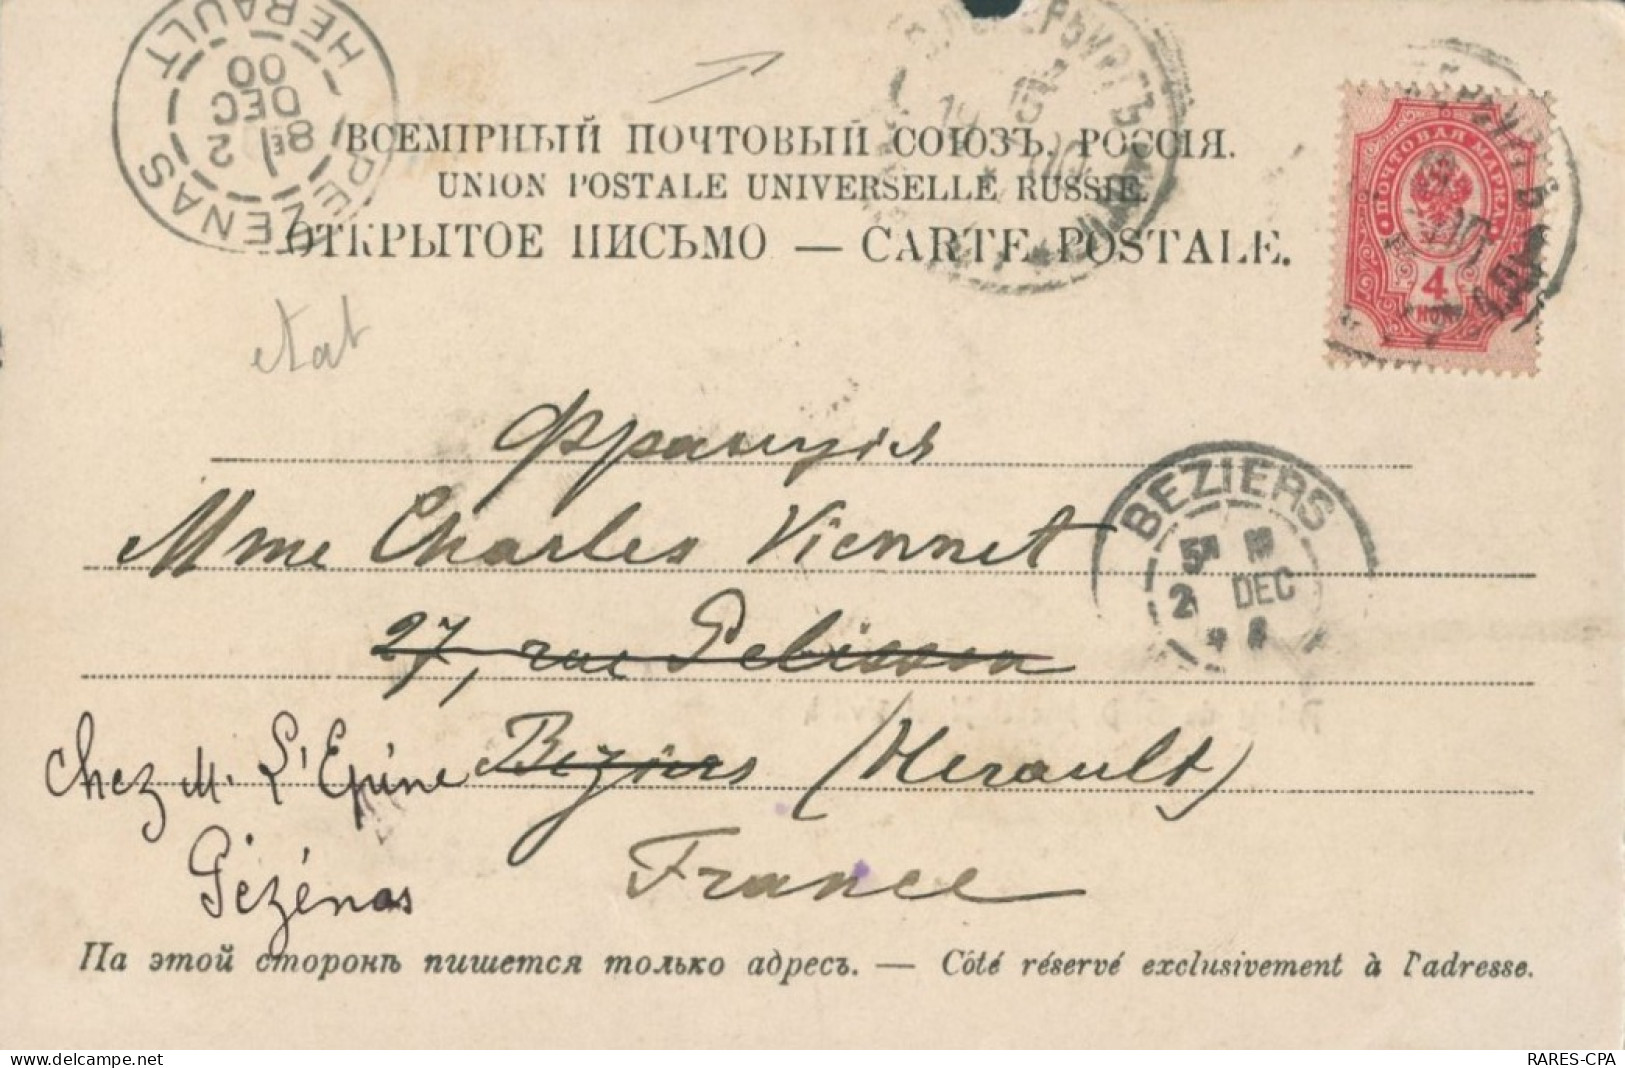 PEZENAS
HERAULT
8E/ 2
DEC
00
ВСЕМІРНЫЙ ПОЧТОВЫЙ СОЮЗЪ. РОССІЯ.
UNION POSTALE UNIVERSELLE RUSSIE.
ОТКРЫТОЕ ПИСЬМО — CARTE POSTALE.
ПОЧТОВАЯ МАРКА
4
etat
Франція
Mme Charles Viennet
27, rue Pelisson
Beziers (Herault)
Chez M. L'Epine
Pézénas
France
BEZIERS
2 DEC
На этой сторонѣ пишется только адресъ. — Côté réservé exclusivement à l'adresse.
delcampe.net
RARES-CPA